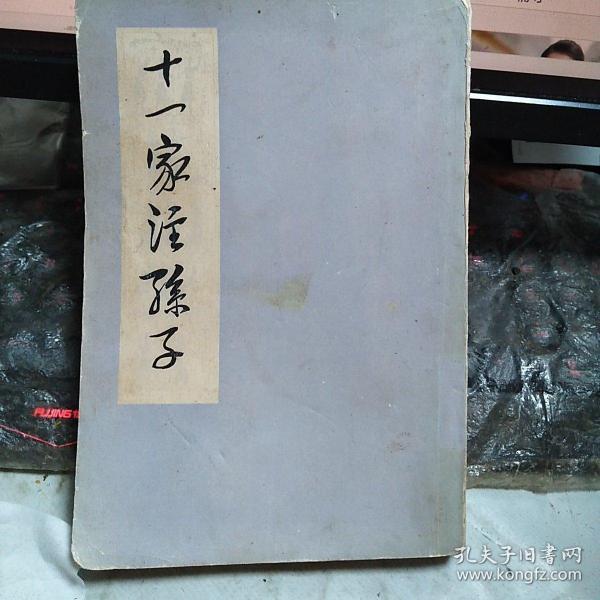 十一家注孫子
FUJING
孔夫子旧書网
www.kongfz.com